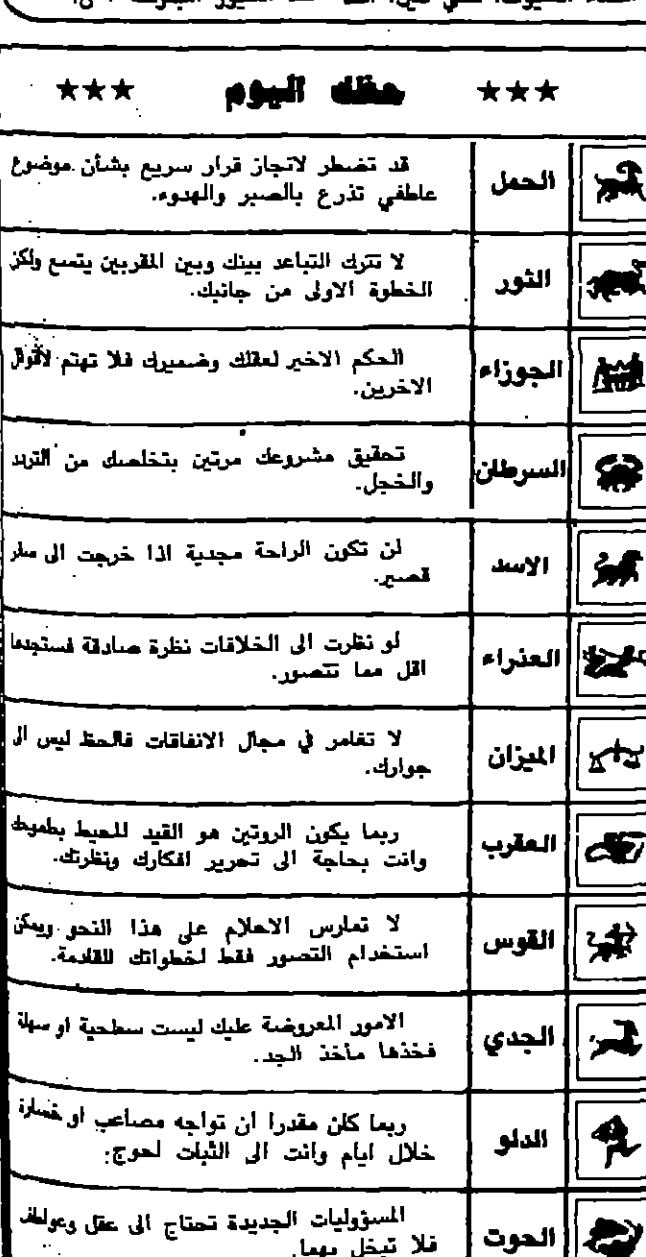 ★★★ حظك اليوم ★★★
الحمل
قد تضطر لاتجاز قرار سريع بشأن موضوع
عاطفي تذرع بالصبر والهدوء.
الثور
لا تترك التباعد بينك وبين المقربين يتسع ولكن
الخطوة الاولى من جانبك.
الجوزاء
الحكم الاخير لعقلك وضميرك فلا تهتم لأقوال
الاخرين.
السرطان
تحقيق مشروعك مرتين بتخلصك من التردد
والخجل.
الاسد
لن تكون الراحة مجدية اذا خرجت الى سفر
قصير.
العذراء
لو نظرت الى الخلافات نظرة صادقة فستجدها
اقل مما تتصور.
الميزان
لا تغامر في مجال الانفاقات فالحظ ليس الى
جوارك.
العقرب
ربما يكون الروتين هو القيد المحيط بطموحك
وانت بحاجة الى تحرير افكارك ونظرتك.
القوس
لا تمارس الاحلام على هذا النحو ويمكن
استخدام التصور فقط لخطواتك القادمة.
الجدي
الامور المعروضة عليك ليست سطحية او سهلة
فخذها مأخذ الجد.
الدلو
ربما كان مقدرا ان تواجه مصاعب او خسارة
خلال ايام وانت الى الثبات احوج.
الحوت
المسؤوليات الجديدة تحتاج الى عقل وعواطف
فلا تبخل بهما.